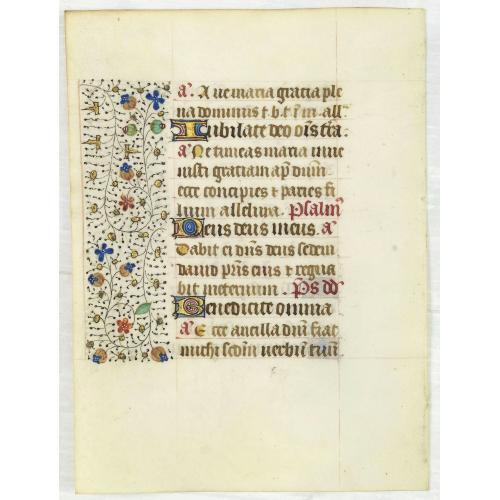 a. Ave maria gracia ple
na dominus t. b. t i m. all'
Iubilate deo o͞is t͞ra.
a. Ne timeas maria inue
nisti graciam ap͞ d͞nm
ecce concipies ⁊ paries fi
lium alleluya. Psalm͞
Deus deus meus. a
Dabit ei d͞ns deus sedem
dauid p͞ris eius ⁊ regna
bit ineternum. Ps dd͞
Benedicite omnia
a. Ecce ancilla d͞ni fiat
michi sed͞m uerbu͞ tuu͞.